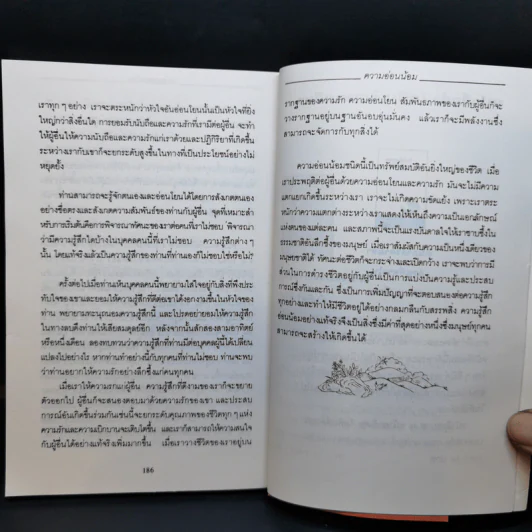 เราทุก ๆ อย่าง เราจะตระหนักว่าหัวใจอันอ่อนโยนนั้นเป็นหัวใจที่ยิ่ง
ใหญ่กว่าสิ่งอื่นใด การยอมรับนับถือและความรักที่เรามีต่อผู้อื่น จะทำ
ให้ผู้อื่นให้ความนับถือและความรักแก่เราด้วยและปฏิกิริยาที่เกิดขึ้น
ระหว่างเรากับเขาก็จะยกระดับสูงขึ้นในทางที่เป็นประโยชน์อย่างไม่
หยุดยั้ง
ท่านสามารถจะรู้จักตนเองและอ่อนโยนได้โดยการสังเกตตนเอง
อย่างซื่อตรงและสังเกตความสัมพันธ์ของท่านกับผู้อื่น จุดที่เหมาะสำ
หรับการเริ่มต้นคือการพิจารณาทัศนะของเราต่อคนที่เราไม่ชอบ พิจารณา
ว่ามีความรู้สึกใดบ้างในบุคคลคนนี้ที่เราไม่ชอบ ความรู้สึกต่าง ๆ
นั้น โดยแท้จริงแล้วเป็นความรู้สึกของท่านที่ท่านเองก็ไม่ชอบใช่หรือไม่?
ครั้งต่อไปเมื่อท่านเห็นบุคคลคนนี้พยายามใส่ใจอยู่กับสิ่งที่พึงประ
ทับใจของเขาและยอมให้ความรู้สึกที่ดีต่อเขาได้งอกงามขึ้นในหัวใจของ
ท่าน พยายามทะนุถนอมความรู้สึกนี้ และโปรดอย่ายอมให้ความรู้สึก
ในทางลบดึงท่านให้เสียสมดุลย์อีก หลังจากนั้นสักสองสามอาทิตย์
หรือหนึ่งเดือน ลองทบทวนว่าความรู้สึกที่ท่านมีต่อบุคคลผู้นี้ได้เปลี่ยน
แปลงไปอย่างไร หากท่านทำอย่างนี้กับทุกคนที่ท่านไม่ชอบ ท่านจะพบ
ว่าท่านอยากให้ความรักอย่างลึกซึ้งแก่คนทุกคน
เมื่อเราให้ความรักแก่ผู้อื่น ความรู้สึกที่ดีงามของเราก็จะขยาย
ตัวออกไป ผู้อื่นก็จะสนองตอบมาด้วยความรักของเขา และประสบ
การณ์อันเกิดขึ้นร่วมกันเช่นนี้จะยกระดับคุณภาพของชีวิตทุก ๆ แห่ง
ความรักและความเบิกบานจะเติบโตขึ้น และเราก็สามารถให้ความสนใจ
กับผู้อื่นได้อย่างแท้จริงเพิ่มมากขึ้น เมื่อเราวางชีวิตของเราอยู่บน
186
ความอ่อนน้อม
รากฐานของความรัก ความอ่อนโยน สัมพันธภาพของเรากับผู้อื่นก็จะ
วางรากฐานอยู่บนฐานอันอบอุ่นมั่นคง แล้วเราก็จะมีพลังงานซึ่ง
สามารถจะจัดการกับทุกสิ่งได้
ความอ่อนน้อมชนิดนี้เป็นทรัพย์สมบัติอันยิ่งใหญ่ของชีวิต เมื่อ
เราประพฤติต่อผู้อื่นด้วยความอ่อนโยนและความรัก มันจะไม่มีความ
แตกแยกเกิดขึ้นระหว่างเรา เราจะไม่เกิดความขัดแย้ง เพราะเราตระ
หนักว่าความแตกต่างระหว่างเราแสดงให้เห็นถึงความเป็นเอกลักษณ์
แห่งตนของแต่ละคน และสภาพนี้จะเป็นแรงบันดาลใจให้เราซาบซึ้งใน
ธรรมชาติอันลึกซึ้งของมนุษย์ เมื่อเราสัมผัสกับความเป็นหนึ่งเดียวของ
มนุษยชาติได้ ทัศนะต่อชีวิตก็จะกระจ่างและเปิดกว้าง เราจะพบว่าการมี
ส่วนในการดำรงชีวิตอยู่กับผู้อื่นเป็นการแบ่งปันความรู้และประสบ
การณ์ซึ่งกันและกัน ซึ่งเป็นการเพิ่มปัญญาที่จะตอบสนองต่อความรู้สึก
ทุกอย่างและทำให้มีชีวิตอยู่ได้อย่างกลมกลืนกับสรรพสิ่ง ความรู้สึก
อ่อนน้อมอย่างแท้จริงจึงเป็นสิ่งซึ่งมีค่าที่สุดอย่างหนึ่งซึ่งมนุษย์ทุกคน
สามารถจะสร้างให้เกิดขึ้นได้